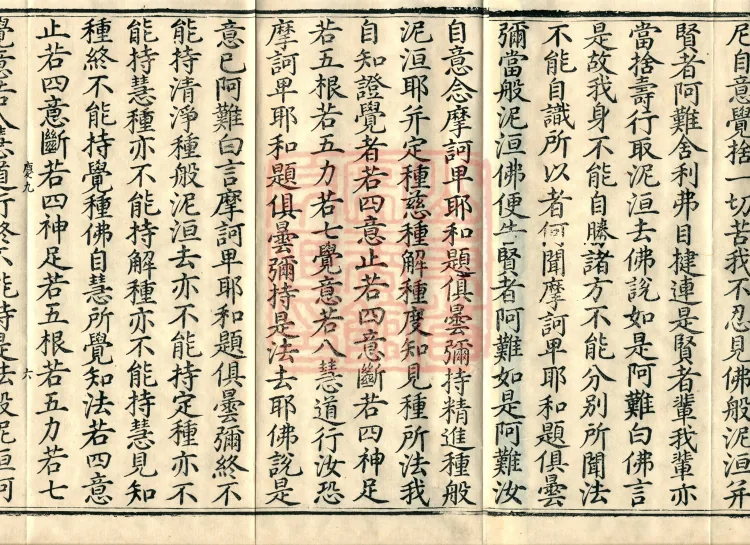 尼自意覺捨一切苦我不忍見佛般泥洹并
賢者阿難舍利弗目揵連是賢者輩我輩亦
當捨壽行取泥洹去佛說如是阿難白佛言
是故我身不能自勝諸方不能分別所聞法
不能自識所以者何聞摩訶卑耶和題俱曇
彌當般泥洹佛便告賢者阿難如是阿難汝
自意念摩訶卑耶和題俱曇彌持精進種般
泥洹耶并定種慈種解種度知見種所法我
自知證覺者若四意止若四意斷若四神足
若五根若五力若七覺意若八慧道行汝恐
摩訶卑耶和題俱曇彌持是法去耶佛說是
意已阿難曰言摩訶卑耶和題俱曇彌終不
能持清淨種般泥洹去亦不能持定種亦不
能持慧種亦不能持解種亦不能持慧見知
種終不能持覺種佛自慧所覺知法若四意
止若四意斷若四神足若五根若五力若七
慶九 六
覺意若八慧道行終不能持是法般泥洹阿